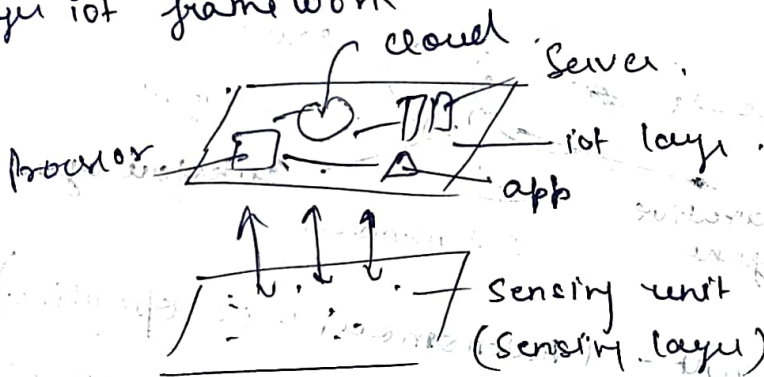 iot framework
cloud
Server.
Processor
iot layer.
app
Sensing unit
(Sensing layer)